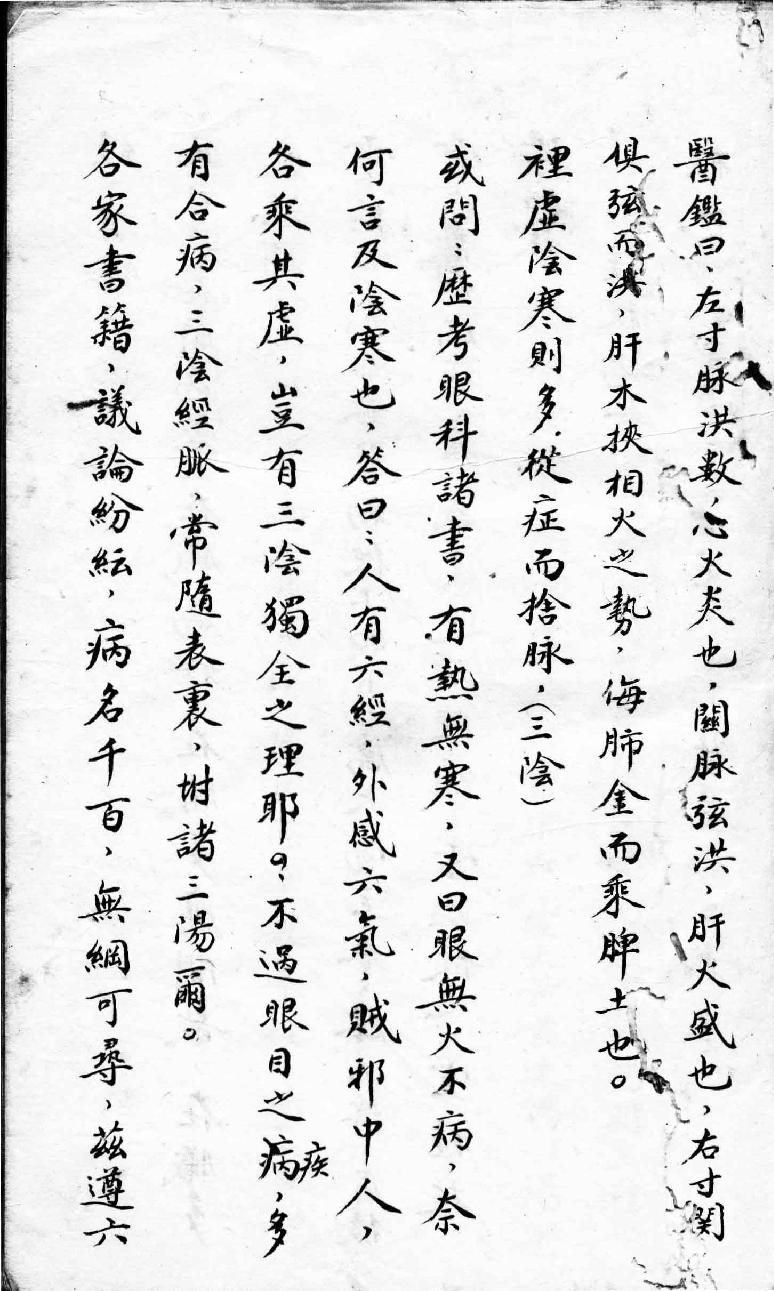 醫鑑曰、左寸脉洪数，心火炎也，關脉弦洪，肝火盛也，右寸関
俱弦而洪，肝木挾相火之勢，侮肺金而乘脾土也。
裡虛陰寒則多，從症而捨脉，（三陰）
或問：歷考眼科諸書，有熱無寒，又曰眼無火不病，奈
何言及陰寒也，答曰：人有六經，外感六氣，賊邪中人，
各乘其虛，豈有三陰獨全之理耶？不過眼目之病疾，多
有合病，三陰經脈，常隨表裏，坿諸三陽爾。
各家書籍，議論紛紜，病名千百，無綱可尋，茲遵六